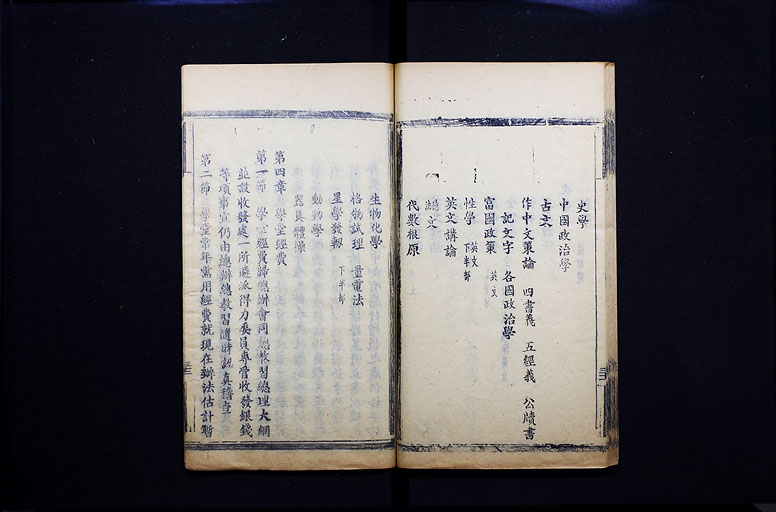 史學
中國政治學
古文
作中文策論 四書義 五經義 公牘書
記文字 各國政治學
富國政策 英文
性學 英文下半部
英文講論
賴文
代數根原
生物化學
格物試理 量電法
星學發軔 下半部
動物學
器具體操
第四章 學堂經費
第一節 學堂經費歸總辦會同總教習總理大綱
並設收發處一所遴派得力委員專管收發銀錢
等項事宜仍由總辦總教習隨時認真稽查
第二節 學堂常年需用經費就現在辦法估計暫